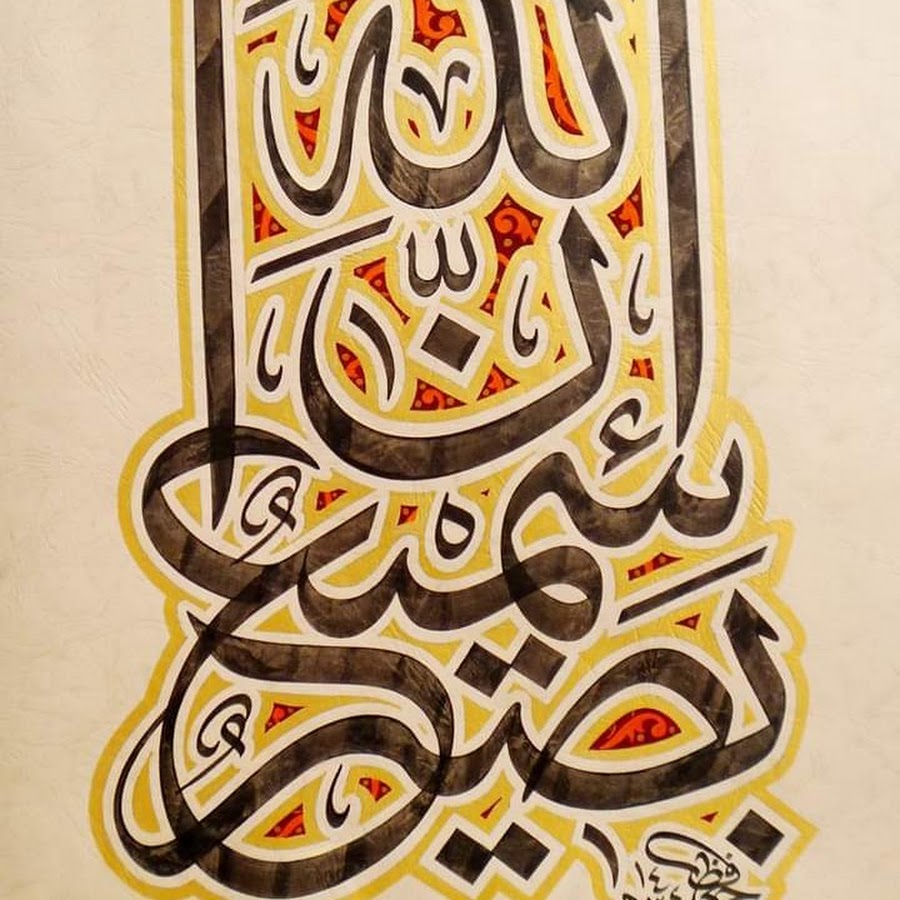 إِنَّ اللهَ
سَمِيعٌ
بَصِيرٌ